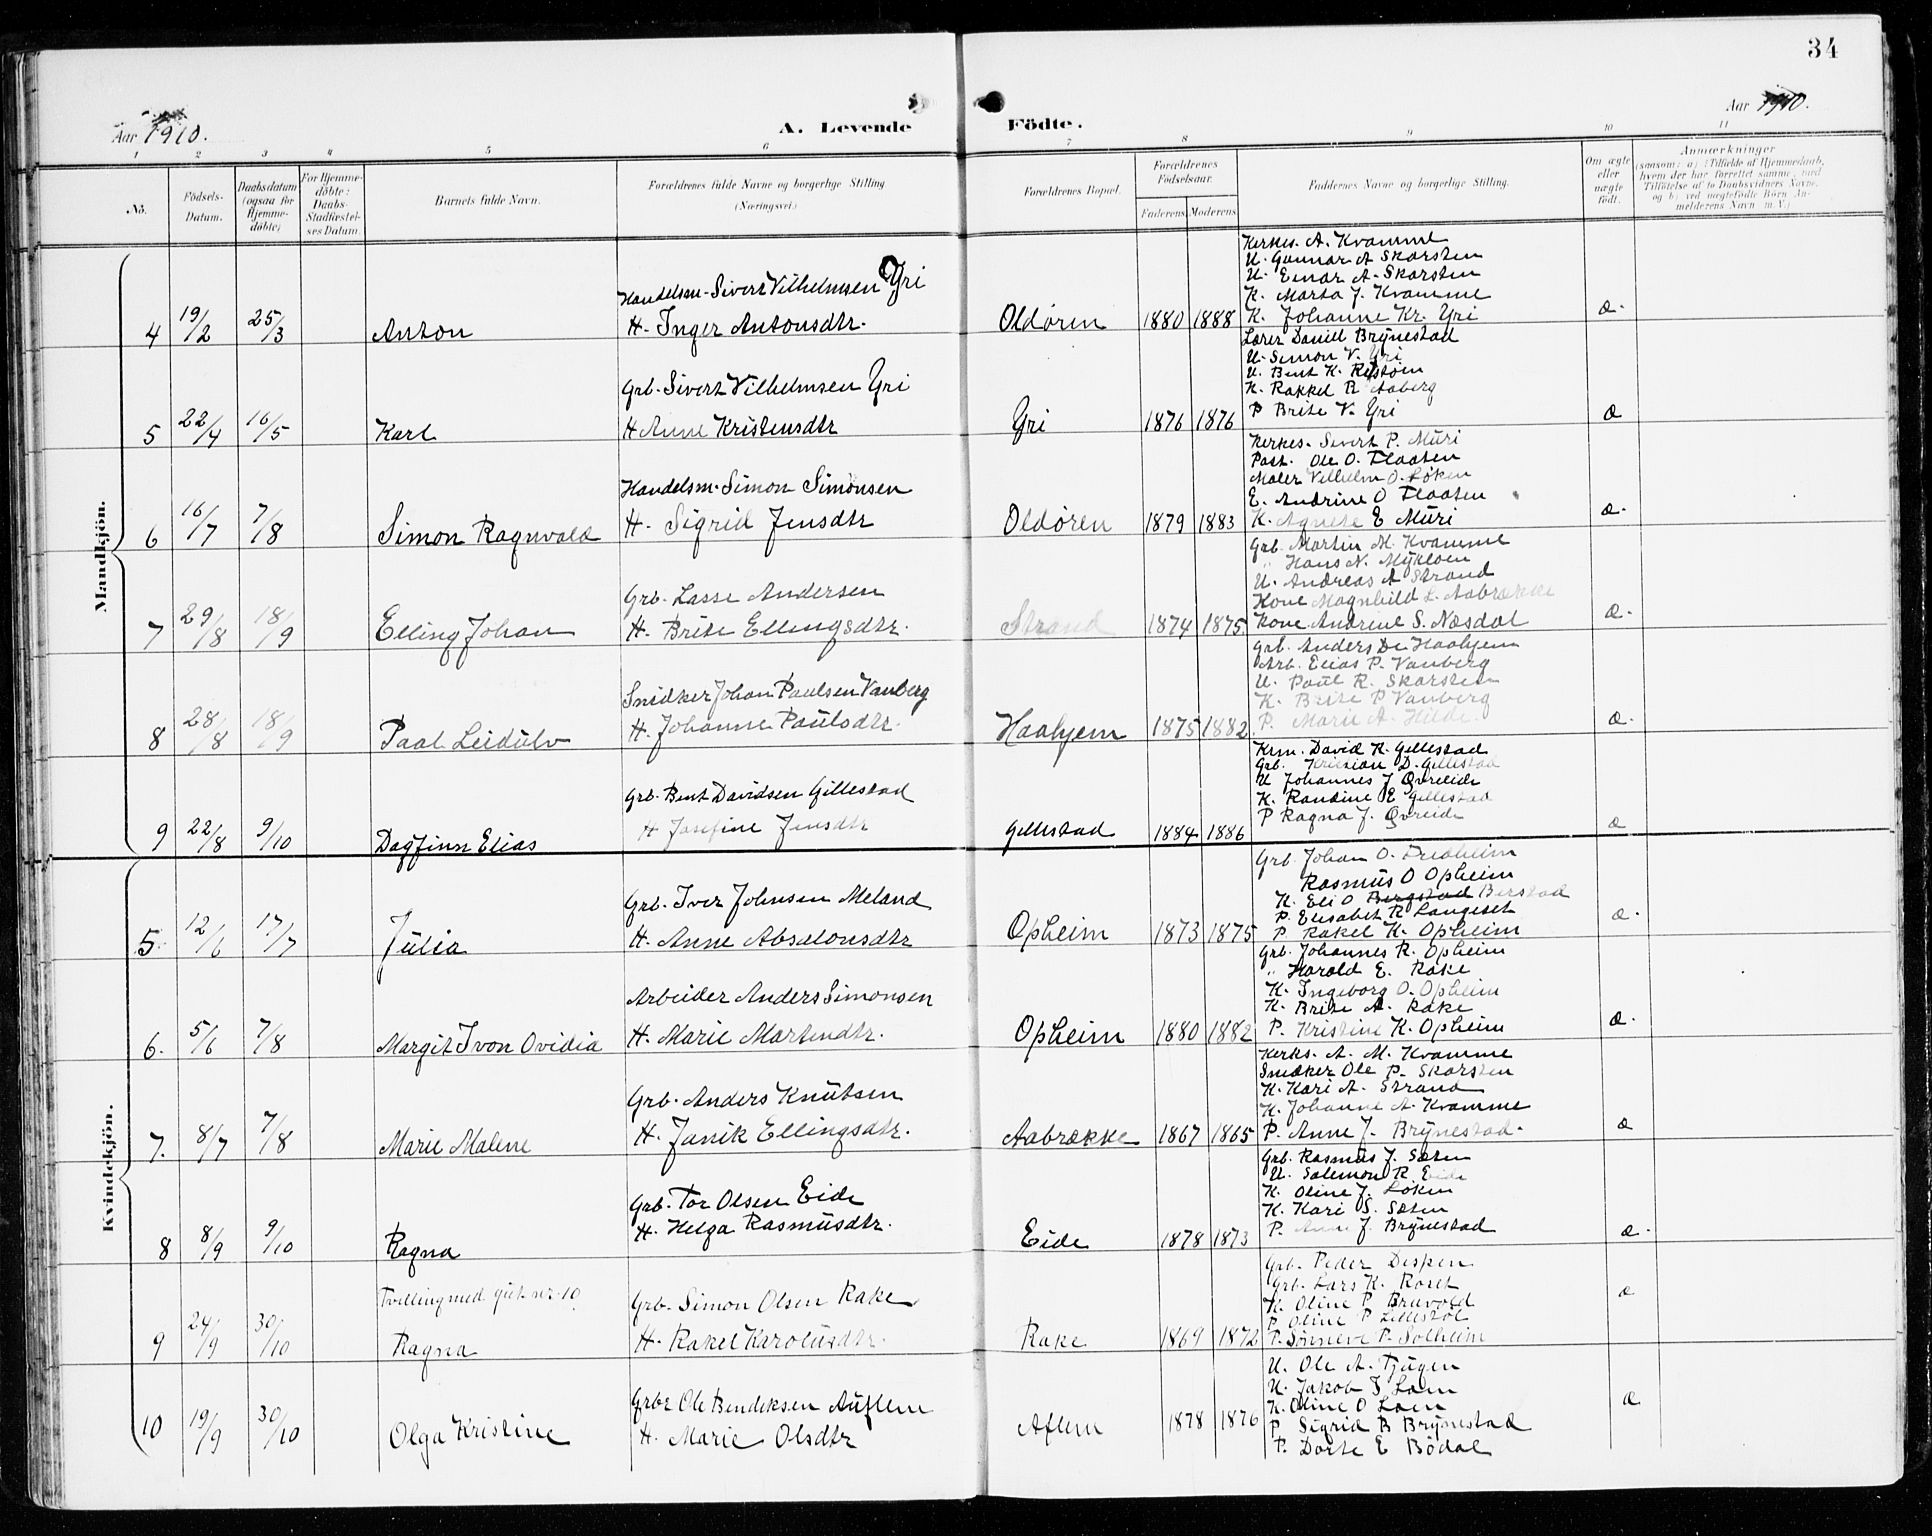 34
Aar 1910.
A. Levende Födte.
Aar 1910.
1 2 3 4 5 6 7 8 9 10 11
No.
Födsels-Datum.
Daabsdatum (ogsaa for Hjemmedöbte)
For Hjemmedöbte: Daabs-Stadfæstelses Datum.
Barnets fulde Navn.
Forældrenes fulde Navne og borgerlige Stilling (Næringsvei.)
Forældrenes Bopæl.
Forældrenes Födselsaar.
Faderens Moderens
Faddernes Navne og borgerlige Stilling.
Om ægte eller uægte födt.
Anmærkninger
(saasom: a) i Tilfælde af Hjemmedaab, hvem der har forrettet samme, med Tilföielse af to Daabsvidners Navne, og b) ved uægtefödte Börn Anmelderens Navn m. V.)
Mandkjön.
4 19/2 25/3 Anton
Handelsm. Sivert Vilhelmsen Yri
H. Inger Antonsdtr.
Oldören 1880 1888
Kirkes. A. Kvamme
U. Gunnar A Skarsten
U. Einar A. Skarsten
K. Marta J. Kvamme
K. Johanne Kr. Yri
æ.
5 22/4 16/5 Karl
Grb. Sivert Vilhelmsen Yri
H Anne Kristensdtr
Yri 1876 1876
Lærer Daniel Brynestad
U. Simon V. Yri
U. Bent K.
K. Rakkel R Aaberg
P Brite V. Yri
æ
6 16/7 7/8 Simon Ragnvald
Handelsm. Simon Simonsen
H. Sigrid Jensdtr
Oldören 1879 1883
Kirkes. Sivert P. Muri
Post. Ole O. Flaaten
Maler Vilhelm O. Löken
E. Andrine O Flaaten
K. Agnete E Muri
æ.
7 29/8 18/9 Elling Johan
Grb. Lasse Andersen
H. Brite Ellingsdtr.
Strand 1874 1875
Grb. Martin M. Kvamme
" Hans N. Mykloen
U. Andreas A Strand
Kone Magnhild L. Aabrække
Kone Andrine S. Næsdal
æ.
8 28/8 18/9 Paal Leidulv
Snidker Johan Paulsen Vanberg
H. Johanne Paulsdtr.
Haahjem 1875 1882
Grb. Anders D. Haahjem
Arb. Elias P. Vanberg
U. Paul R. Skarsten
K. Brite P Vanberg
P. Marie A. Hilde.
æ.
9 22/8 9/10 Dagfinn Elias
Grb. Bent Davidsen Gillestad
H Josefine Jensdtr
Gillestad 1884 1886
Krm. David R. Gillestad
Grb. Kristian D. Gillestad
U Johannes J Övreeide
K. Randine E Gillestad
P Ragna J. Övreeide
æ
Kvindekjön.
5. 12/6 17/7 Julia
Grb. Iver Johnsen Meland
H. Anne Absalonsdtr
Opheim 1873 1875
Grb. Johan O. Fredheim
Rasmus O Opheim
K. Eli O Bergstad Berstad
P. Elisabet R Langeset
P. Rakel K. Opheim
æ.
6. 5/6 7/8 Margit Ivon Ovidia
Arbeider Anders Simonsen
H. Marie Martendtr.
Opheim 1880 1882
Grb. Johannes R. Opheim
" Harald E. Rake
K. Ingeborg O. Opheim
K. Brite A. Rake
P. Kristine K. Opheim
æ.
7. 8/7 7/8 Marie Malene
Grb. Anders Knutsen
H. Janik Ellingsdtr.
Aabrække 1867 1865
Kirks. A. M. Kvamme
Snidker Ole P. Skarsten
K. Kari A. Strand
K. Johanne A. Kvamme
P. Anne J. Brynestad.
æ
8 8/9 9/10 Ragna
Grb. Tor Olsen Eide
H. Helga Rasmusdtr.
Eide 1878 1873
Grb. Rasmus J. Sæten
U. Salemon R. Eide
K. Oline J. Löken
K. Kari S. Sæten
P. Anne J. Brynestad
æ.
9 24/9 30/10 Tvilling med gut nr. 10
Ragna
Grb. Simon Olsen Rake
H. Rakel Karolusdtr.
Rake 1869 1872
Grb. Peder Dispen
Grb. Lars K. Roset
K. Oline P. Bruvold
P. Oline P Lillestöl
P. Sönneve P. Solheim
æ
10 19/9 30/10 Olga Kristine
Grbr Ole Bendiksen Auflem
H. Marie Olsdtr
Aflem 1878 1876
U. Ole A. Tjugen
U. Jakob T Loen
K. Oline O Loen
P. Sigrid B Brynestad
P. Dorte E Bödal
æ